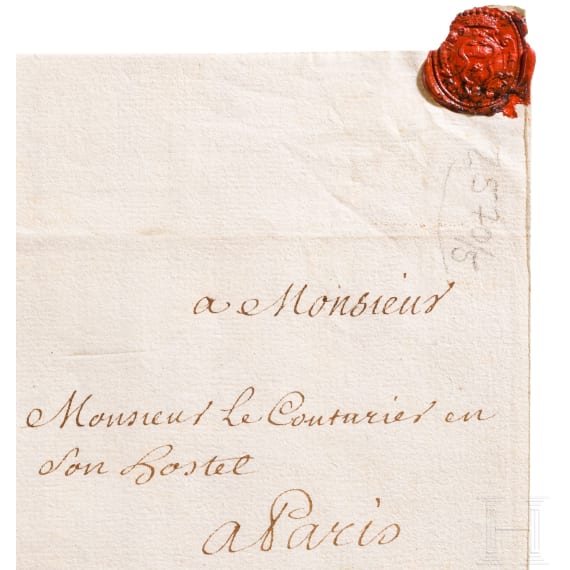 a Monsieur
Monsieur Le Couturier en
Son hostel
a Paris